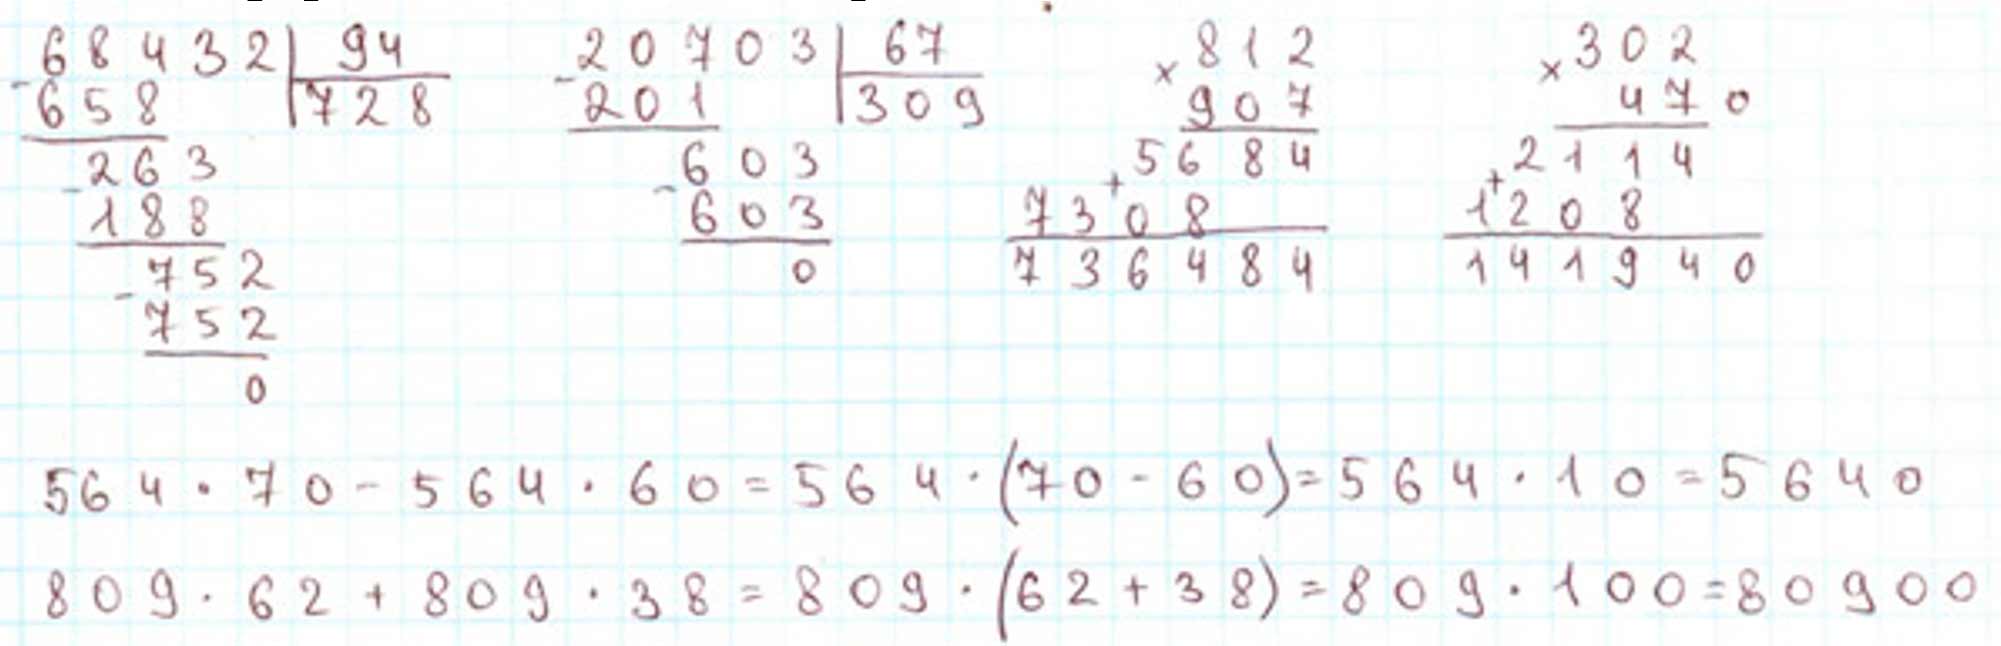 68432 | 94
- 658 | 728
- 263
188
- 752
752
0
20703 | 67
- 201 | 309
- 603
603
0
× 812
907
5684
+ 7308
736484
× 302
470
2114
+ 1208
141940
564 · 70 - 564 · 60 = 564 · (70 - 60) = 564 · 10 = 5640
809 · 62 + 809 · 38 = 809 · (62 + 38) = 809 · 100 = 80900